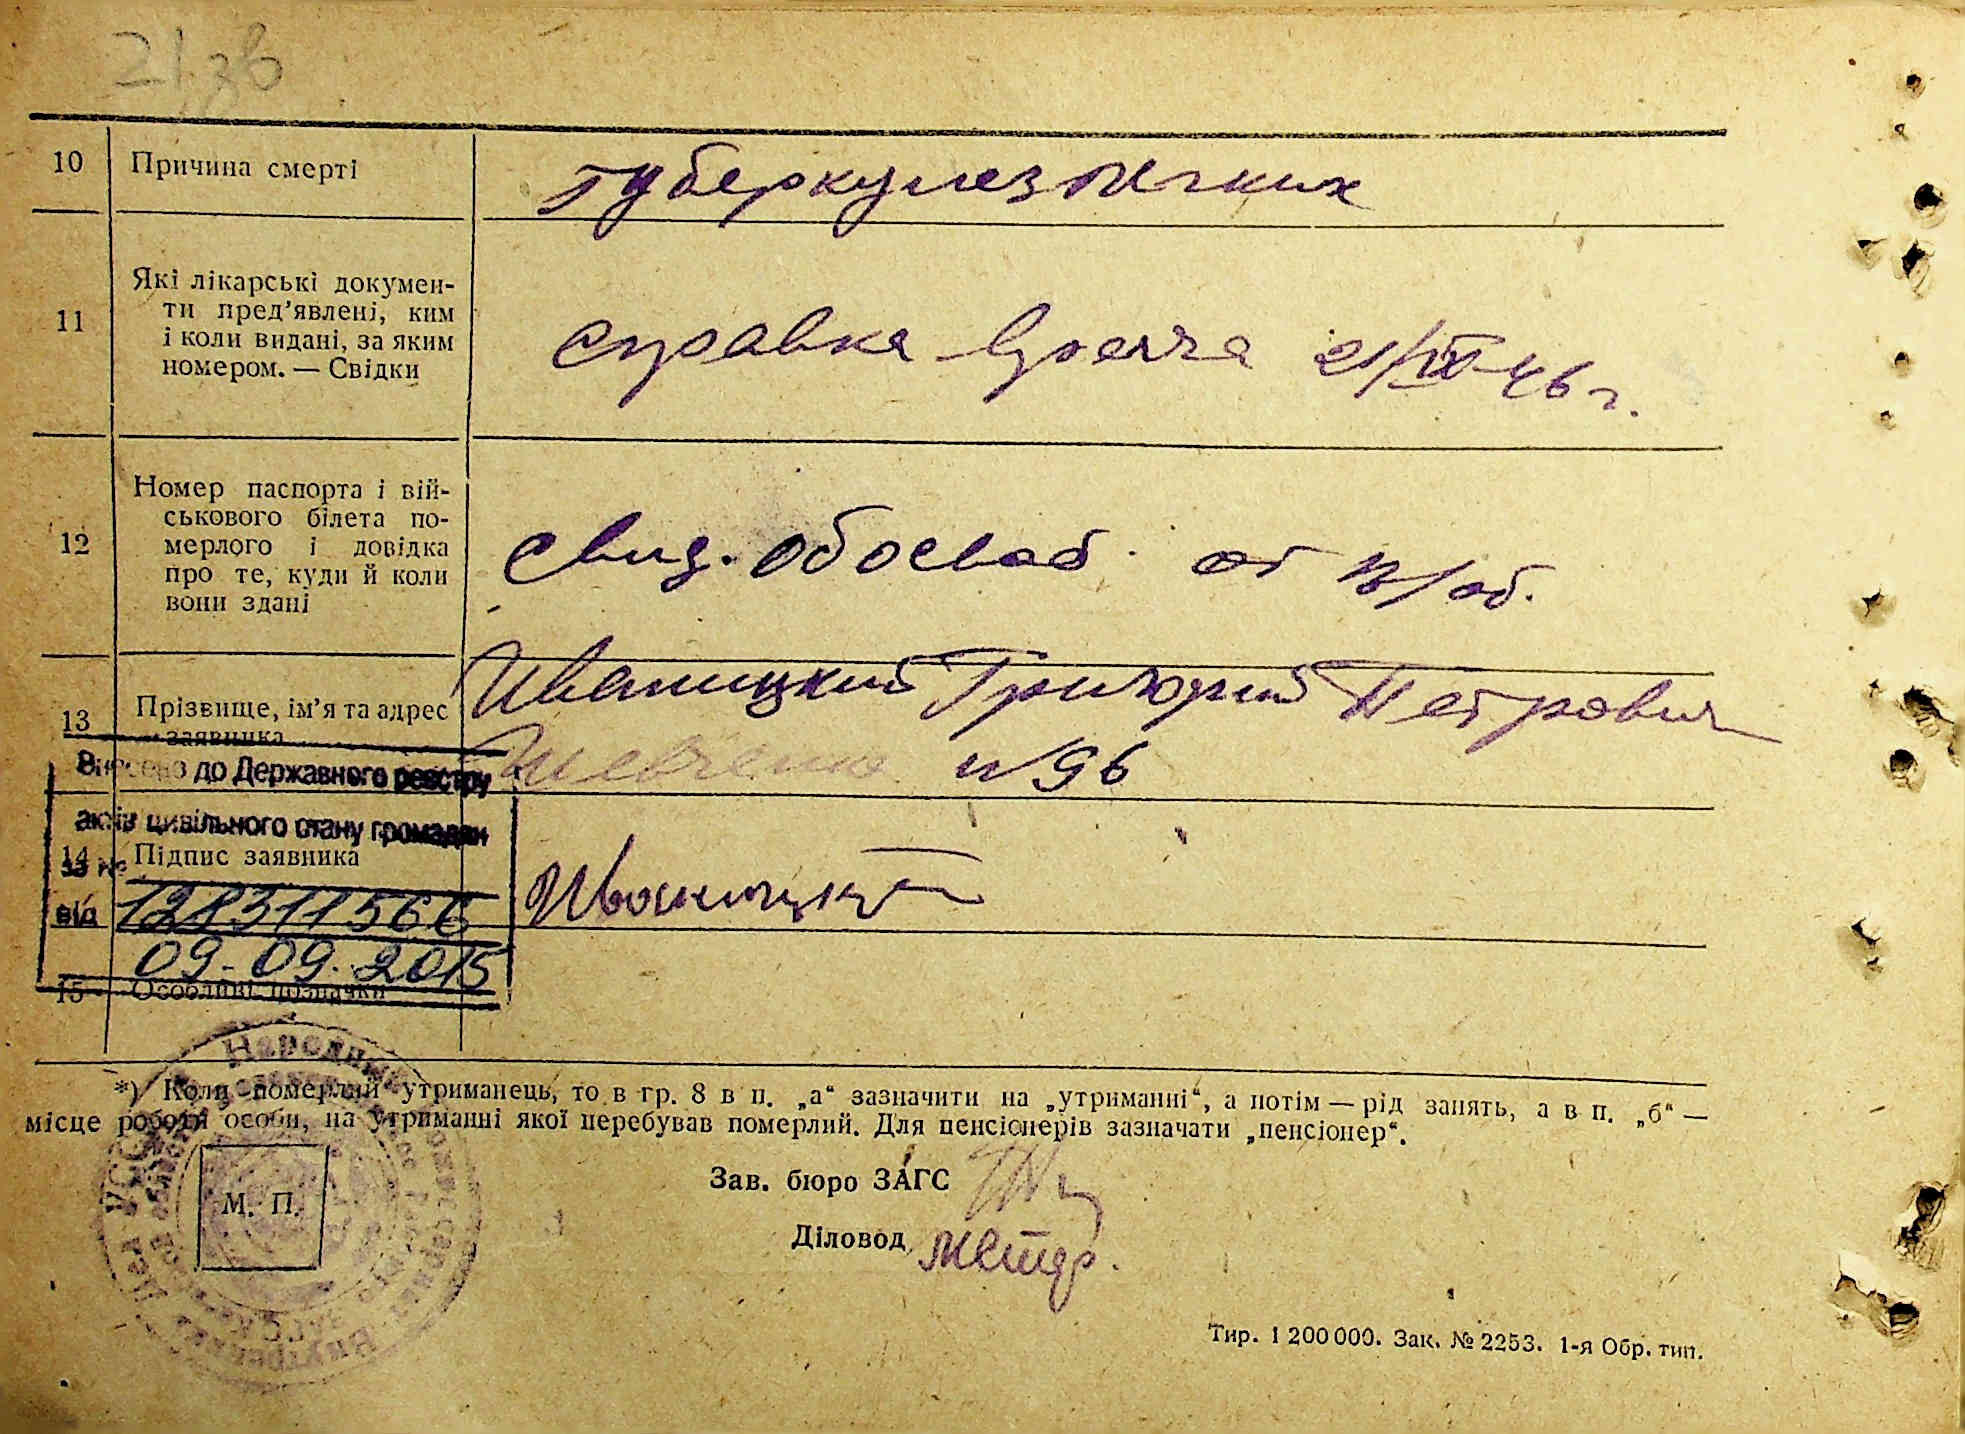 10 Причина смерті туберкулез легких
11 Які лікарські докумен-
ти пред'явлені, ким
і коли видані, за яким
номером. — Свідки
справка врача 21/IX-46 г.
12 Номер паспорта і вій-
ськового білета по-
мерлого і довідка
про те, куди й коли
вони здані
свид. обосвоб. от в/об.
13 Прізвище, ім'я та адрес
заявника
Иваницкий Григорий Петрович
Шевченко №96
Внесено до Державного реєстру
актів цивільного стану громадян
за №
14 Підпис заявника
Иваницкий
від 128311566
09.09.2015
15 Особливі позначки
*) Коли померлий утриманець, то в гр. 8 в п. „а“ зазначити на „утриманні“, а потім — рід занять, а в п. „б“ —
місце роботи особи, на утриманні якої перебував померлий. Для пенсіонерів зазначати „пенсіонер“.
М. П.
Зав. бюро ЗАГС
Діловод
Тир. 1 200 000. Зак. № 2253. 1-я Обр. тип.